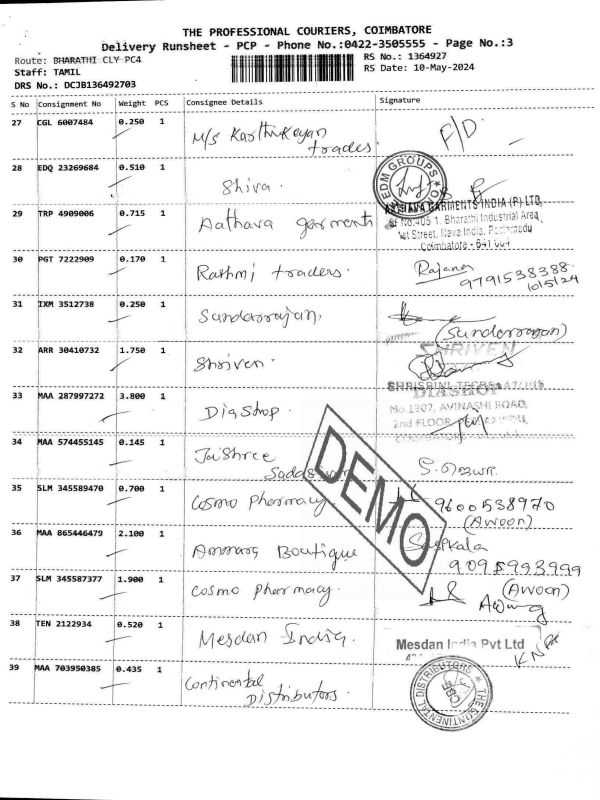 THE PROFESSIONAL COURIERS, COIMBATORE
Delivery Runsheet - PCP - Phone No.:0422-3505555 - Page No.:3
Route: BHARATHI CLY PC4
RS No.: 1364927
Staff: TAMIL
RS Date: 10-May-2024
DRS No.: DCJB136492703
S No Consignment No Weight PCS Consignee Details Signature
27 CGL 6007484 0.250 1 M/s Karthikeyan traders. F/D.
28 EDQ 23269684 0.510 1 Shiva. EDM GROUPS
29 TRP 4909006 0.715 1 Aathava garments
GARMENTS INDIA (P) LTD,
1, Bharathi Industrial Area,
1st Street, Nava India, Peelamedu
Coimbatore - 641 004
30 PGT 7222909 0.170 1 Rashmi traders. Rajana
9791538388
10/5/24
31 IXM 3512738 0.250 1 Sundarrajan. (Sundarrajan)
32 ARR 30410732 1.750 1 Shriven. SHRIVEN
33 MAA 287997272 3.800 1 Diashop. DIASHOP
No.1307, AVINASHI ROAD,
2nd FLOOR,
34 MAA 574455145 0.145 1 Jaishree
35 SLM 345589470 0.700 1 Cosmo Pharmacy 9600538970
(Awoon)
36 MAA 865446479 2.100 1 Boutique Sasikala
9095993999
37 SLM 345587377 1.900 1 Cosmo pharmacy. (Awoon)
38 TEN 2122934 0.520 1 Mesdan India. Mesdan India Pvt Ltd
39 MAA 703950385 0.435 1 Continental Distributors. THE CONTINENTAL DISTRIBUTORS
CBE
DEMO